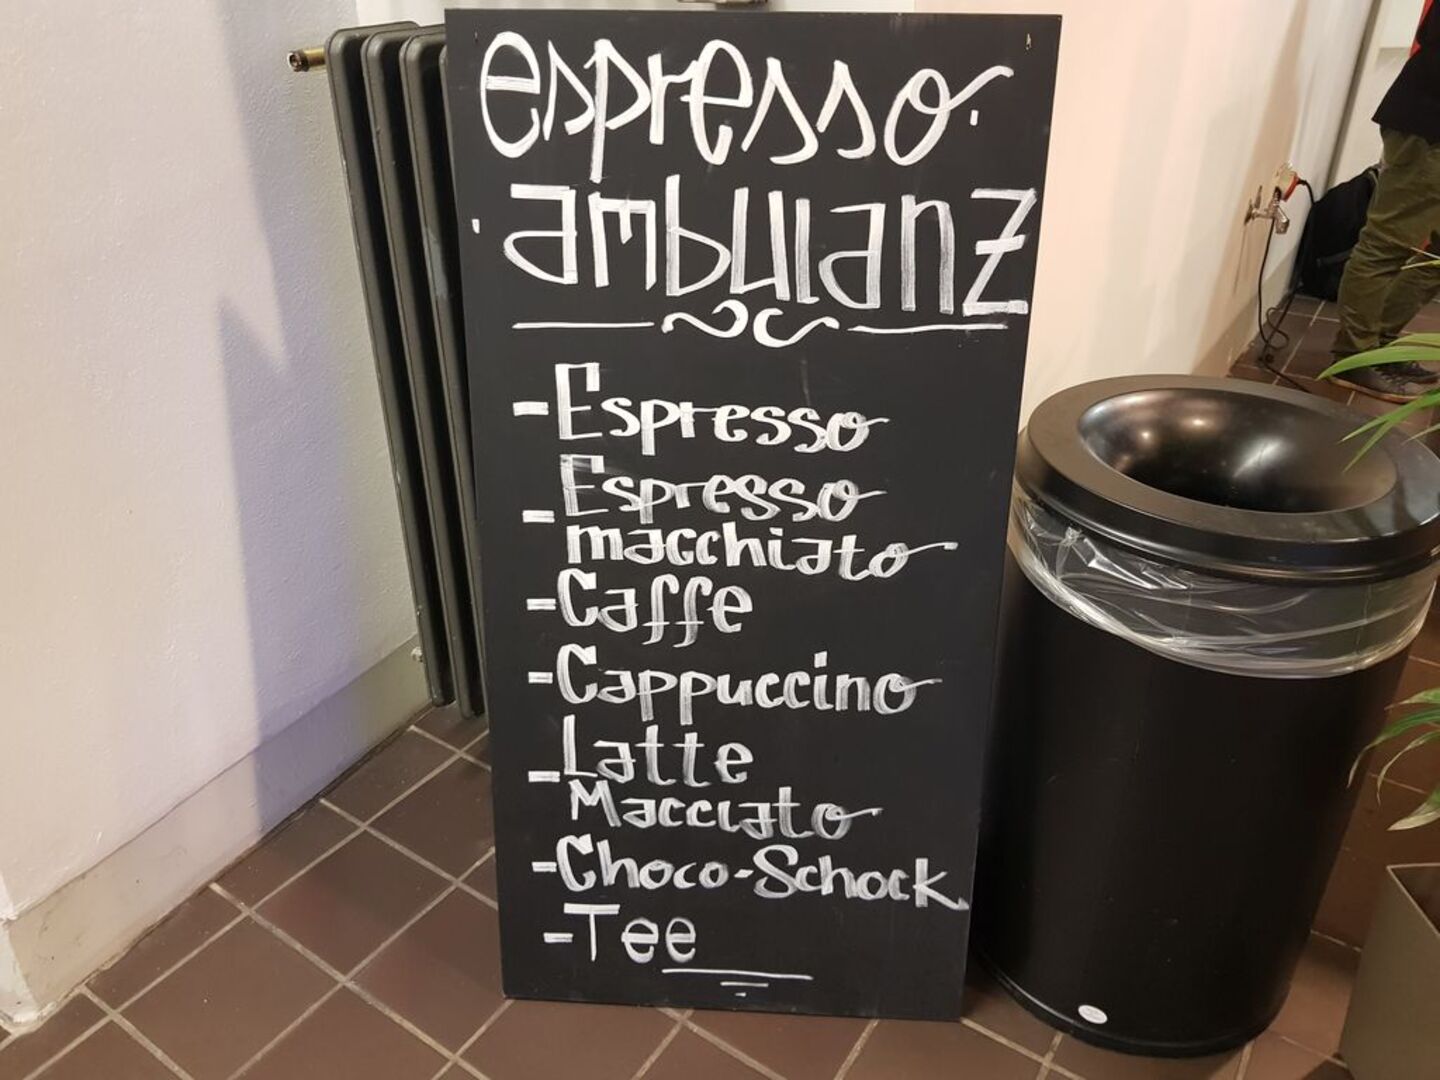 espresso
ambulanz
- Espresso
- Espresso
macchiato
- Caffe
- Cappuccino
- Latte
Macciato
- Choco-Schock
- Tee